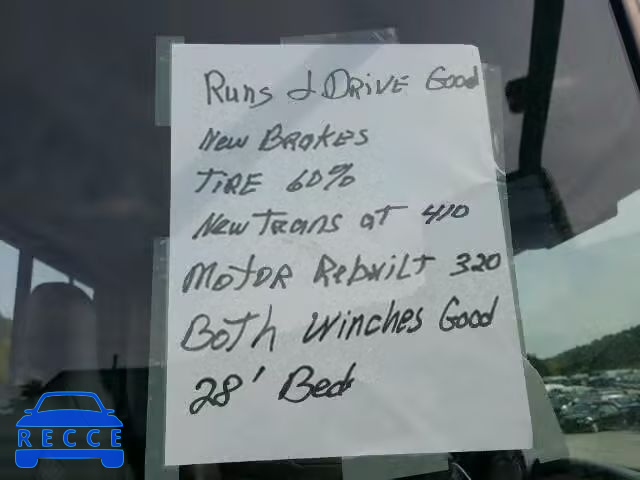 Runs & DRIVE Good
New BRAKES
TIRE 60%
New Trans at 410
MOTOR Rebuilt 320
BOTH Winches Good
28' Bed
RECCE